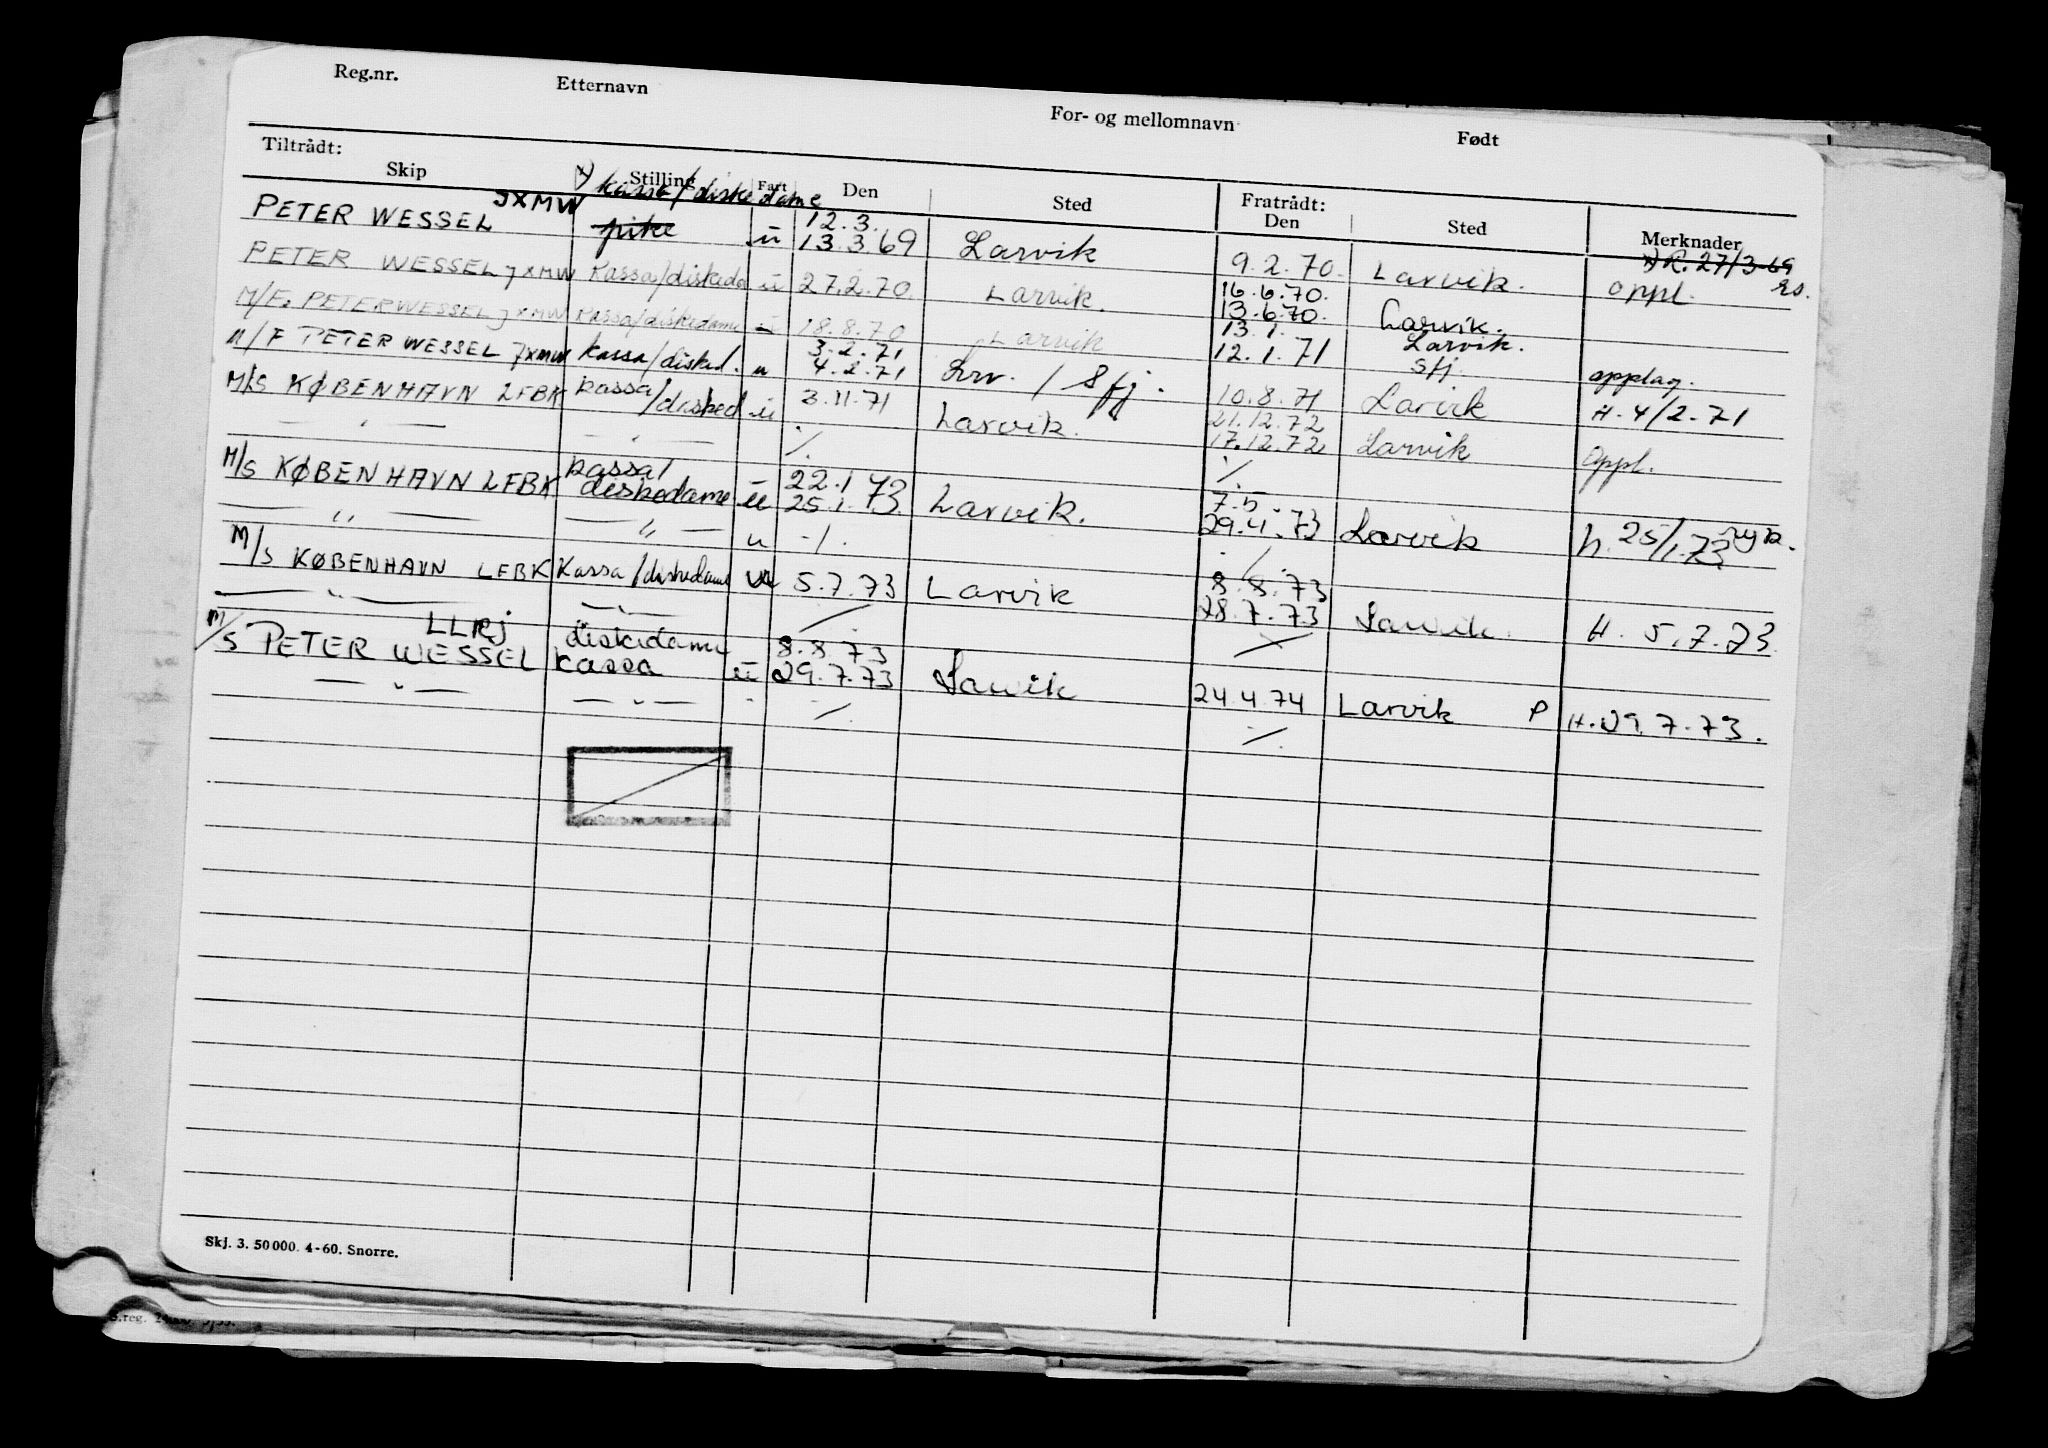 Reg.nr. Etternavn For- og mellomnavn Født
Tiltrådt: Fratrådt:
Skip Stilling Fart Den Sted Den Sted Merknader
x) kassa/diskedame x) R. 27/3-69
PETER WESSEL JXMW pike u 12.3. 13.3.69 Larvik 9.2.70. Larvik. oppl.
PETER WESSEL JXMW Kassa/diskeda u 27.2.70. Larvik. 16.6.70. 13.6.70. Larvik.
M/F. PETER WESSEL JXMW Kassa/diskedame u 18.8.70 Larvik 13.1. 12.1.71 Larvik. Sfj. opplag.
M/F PETER WESSEL JXMW kassa/disked. u 3.2.71 4.2.71 Lrv. / Sfj. 10.8.71 Larvik H. 4/2-71
M/S KØBENHAVN LFBK kassa/disked u 3.11.71 Larvik. 21.12.72 17.12.72 Larvik Oppl.
— " — — " — ./. ./.
M/S KØBENHAVN LFBK kassa/ diskedame u 22.1.73 25.1.73. Larvik. 7.5. 29.4.73 Larvik h. 25/1.73
— " — — " — u -/. ./.
M/S KØBENHAVN LFBK Kassa/diskedame u 5.7.73 Larvik 8.8.73 28.7.73 Larvik. H. 5.7.73.
— " — — " —
M/S PETER WESSEL LLRJ diskedame kassa u 8.8.73 29.7.73 Larvik 24.4.74 Larvik P H.29.7.73.
— " — — " — ./. ./.
Skj. 3. 50 000. 4-60. Snorre.